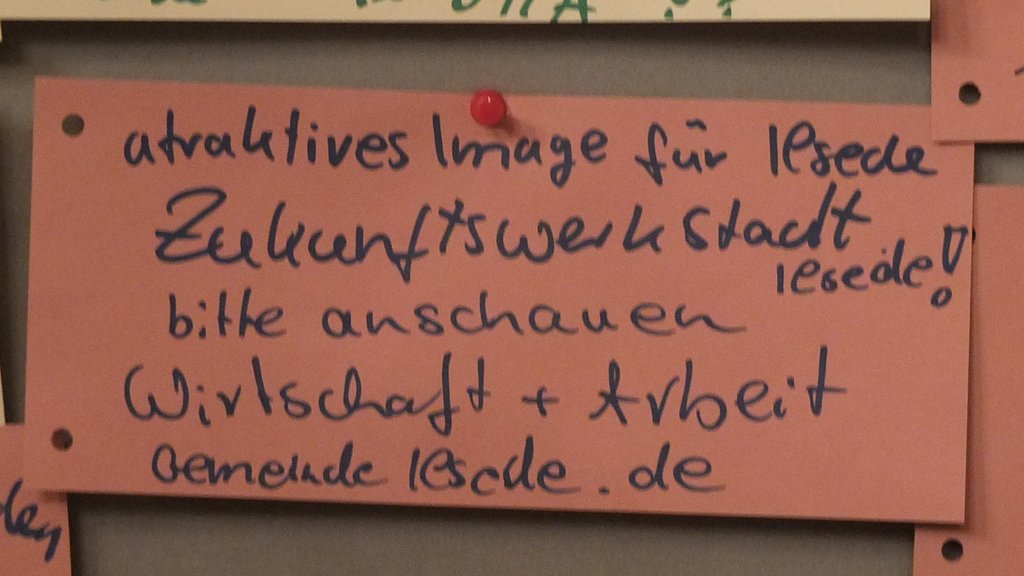 atraktives Image für lesede
Zukunftswerkstadt
lesede!
bitte anschauen
Wirtschaft + Arbeit
Gemeinde lesede.de